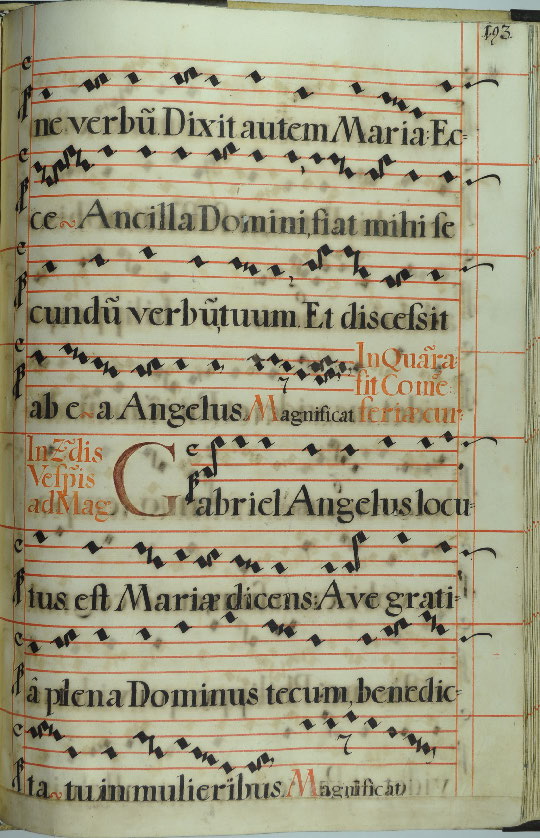 193.
ne verbũ. Dixit autem Maria: Ec-
ce ~ Ancilla Domini, fiat mihi ſe
cundũ verbũ, tuum. Et diſceſsit
ab e ~ a Angelus. Magnificat
In 2.dis Veſpis ad Mag.
Gabriel Angelus locu-
tus eſt Mariæ dicens: Ave grati-
â plena Dominus tecum, benedic-
ta ~ tu in mulieribus. Magnificat